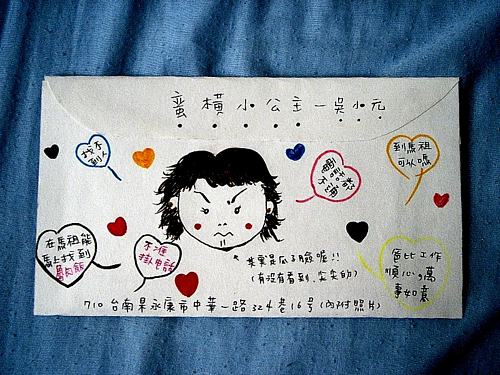 蠻橫小公主—吳小元
找不到人
電話不通
到馬祖
可以嗎
在馬祖能
馬上找到
不准
掛電話
其實是瓜子臉喔!!
(有沒有看到,尖尖的)
工作
順心,萬
事如意
710 台南縣永康市中華一路324巷16号(內附照片)